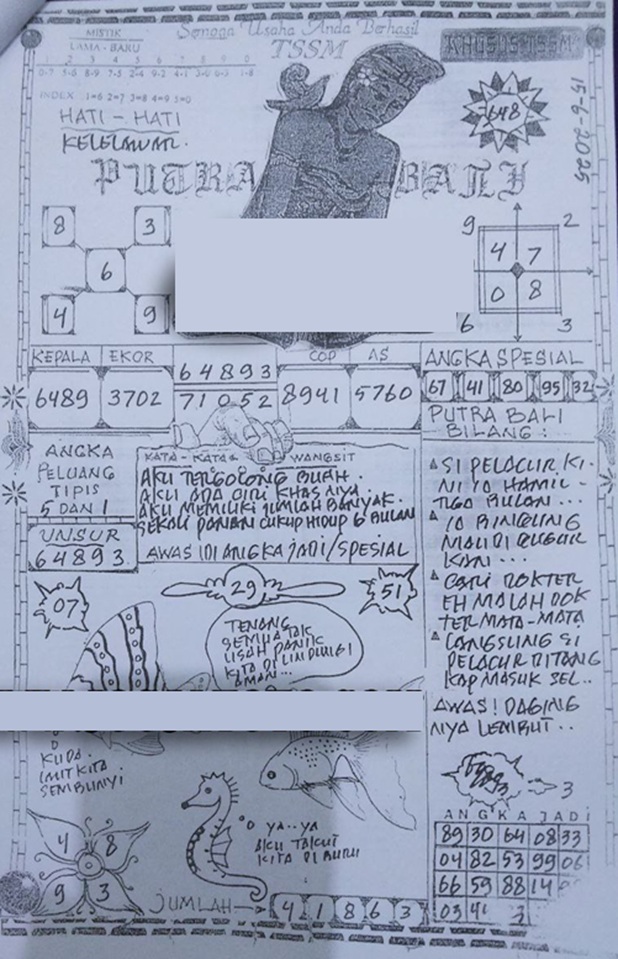 MISTIK
LAMA - BARU
1 2 3 4 5 6 7 8 9 0
0-7 5-6 8-9 7-5 2-4 9-2 4-1 3-0 1-8
INDEX 1=6 2=7 3=8 4=9 5=0
Semoga Usaha Anda Berhasil
TSSM
KHUSUS TSSM
648
15-6-2025
HATI - HATI
KELELAWAR.
PUTRA BALI
8 3
6
4 9
9 2
4 7
0 8
6 3
KEPALA EKOR COP AS
6489 3702 64893 8941 5760
71052
ANGKA SPESIAL
67 41 80 95 32
PUTRA BALI
BILANG :
ANGKA
PELUANG
TIPIS
5 DAN 1
UNSUR
64893
KATA - KATA WANGSIT
AKU TERGOLONG BUAH.
AKU ADA CIRI KHAS NYA.
AKU MEMILIKI JUMLAH BANYAK.
SEKALI PANAN CUKUP HIDUP 6 BULAN
AWAS IDI ANGKA JADI/SPESIAL
SI PELACUR KI-
NI IA HAMIL
TIGA BULAN ...
IA BINGUNG
MAU DI GUGUR
KAN ...
CARI DOKTER
EH MALAH DOK
TER MATA-MATA
LANGSUNG SI
PELACUR DITANG
KAP MASUK SEL..
AWAS! DAGING
NYA LEMBUT ..
07
29
51
TENANG
SEMUA TAK
USAH PANIK
KITA DI LINDUNGI
AMAN...
KUDA.
IMUT KITA
SEMBUNYI
YA..YA
AKU TAKUT
KITA DI BURU
4 8
9 3
JUMLAH 4 1 8 6 3
3
ANGKA JADI
89 30 64 08 33
04 82 53 99 06
66 59 88 14
03 41